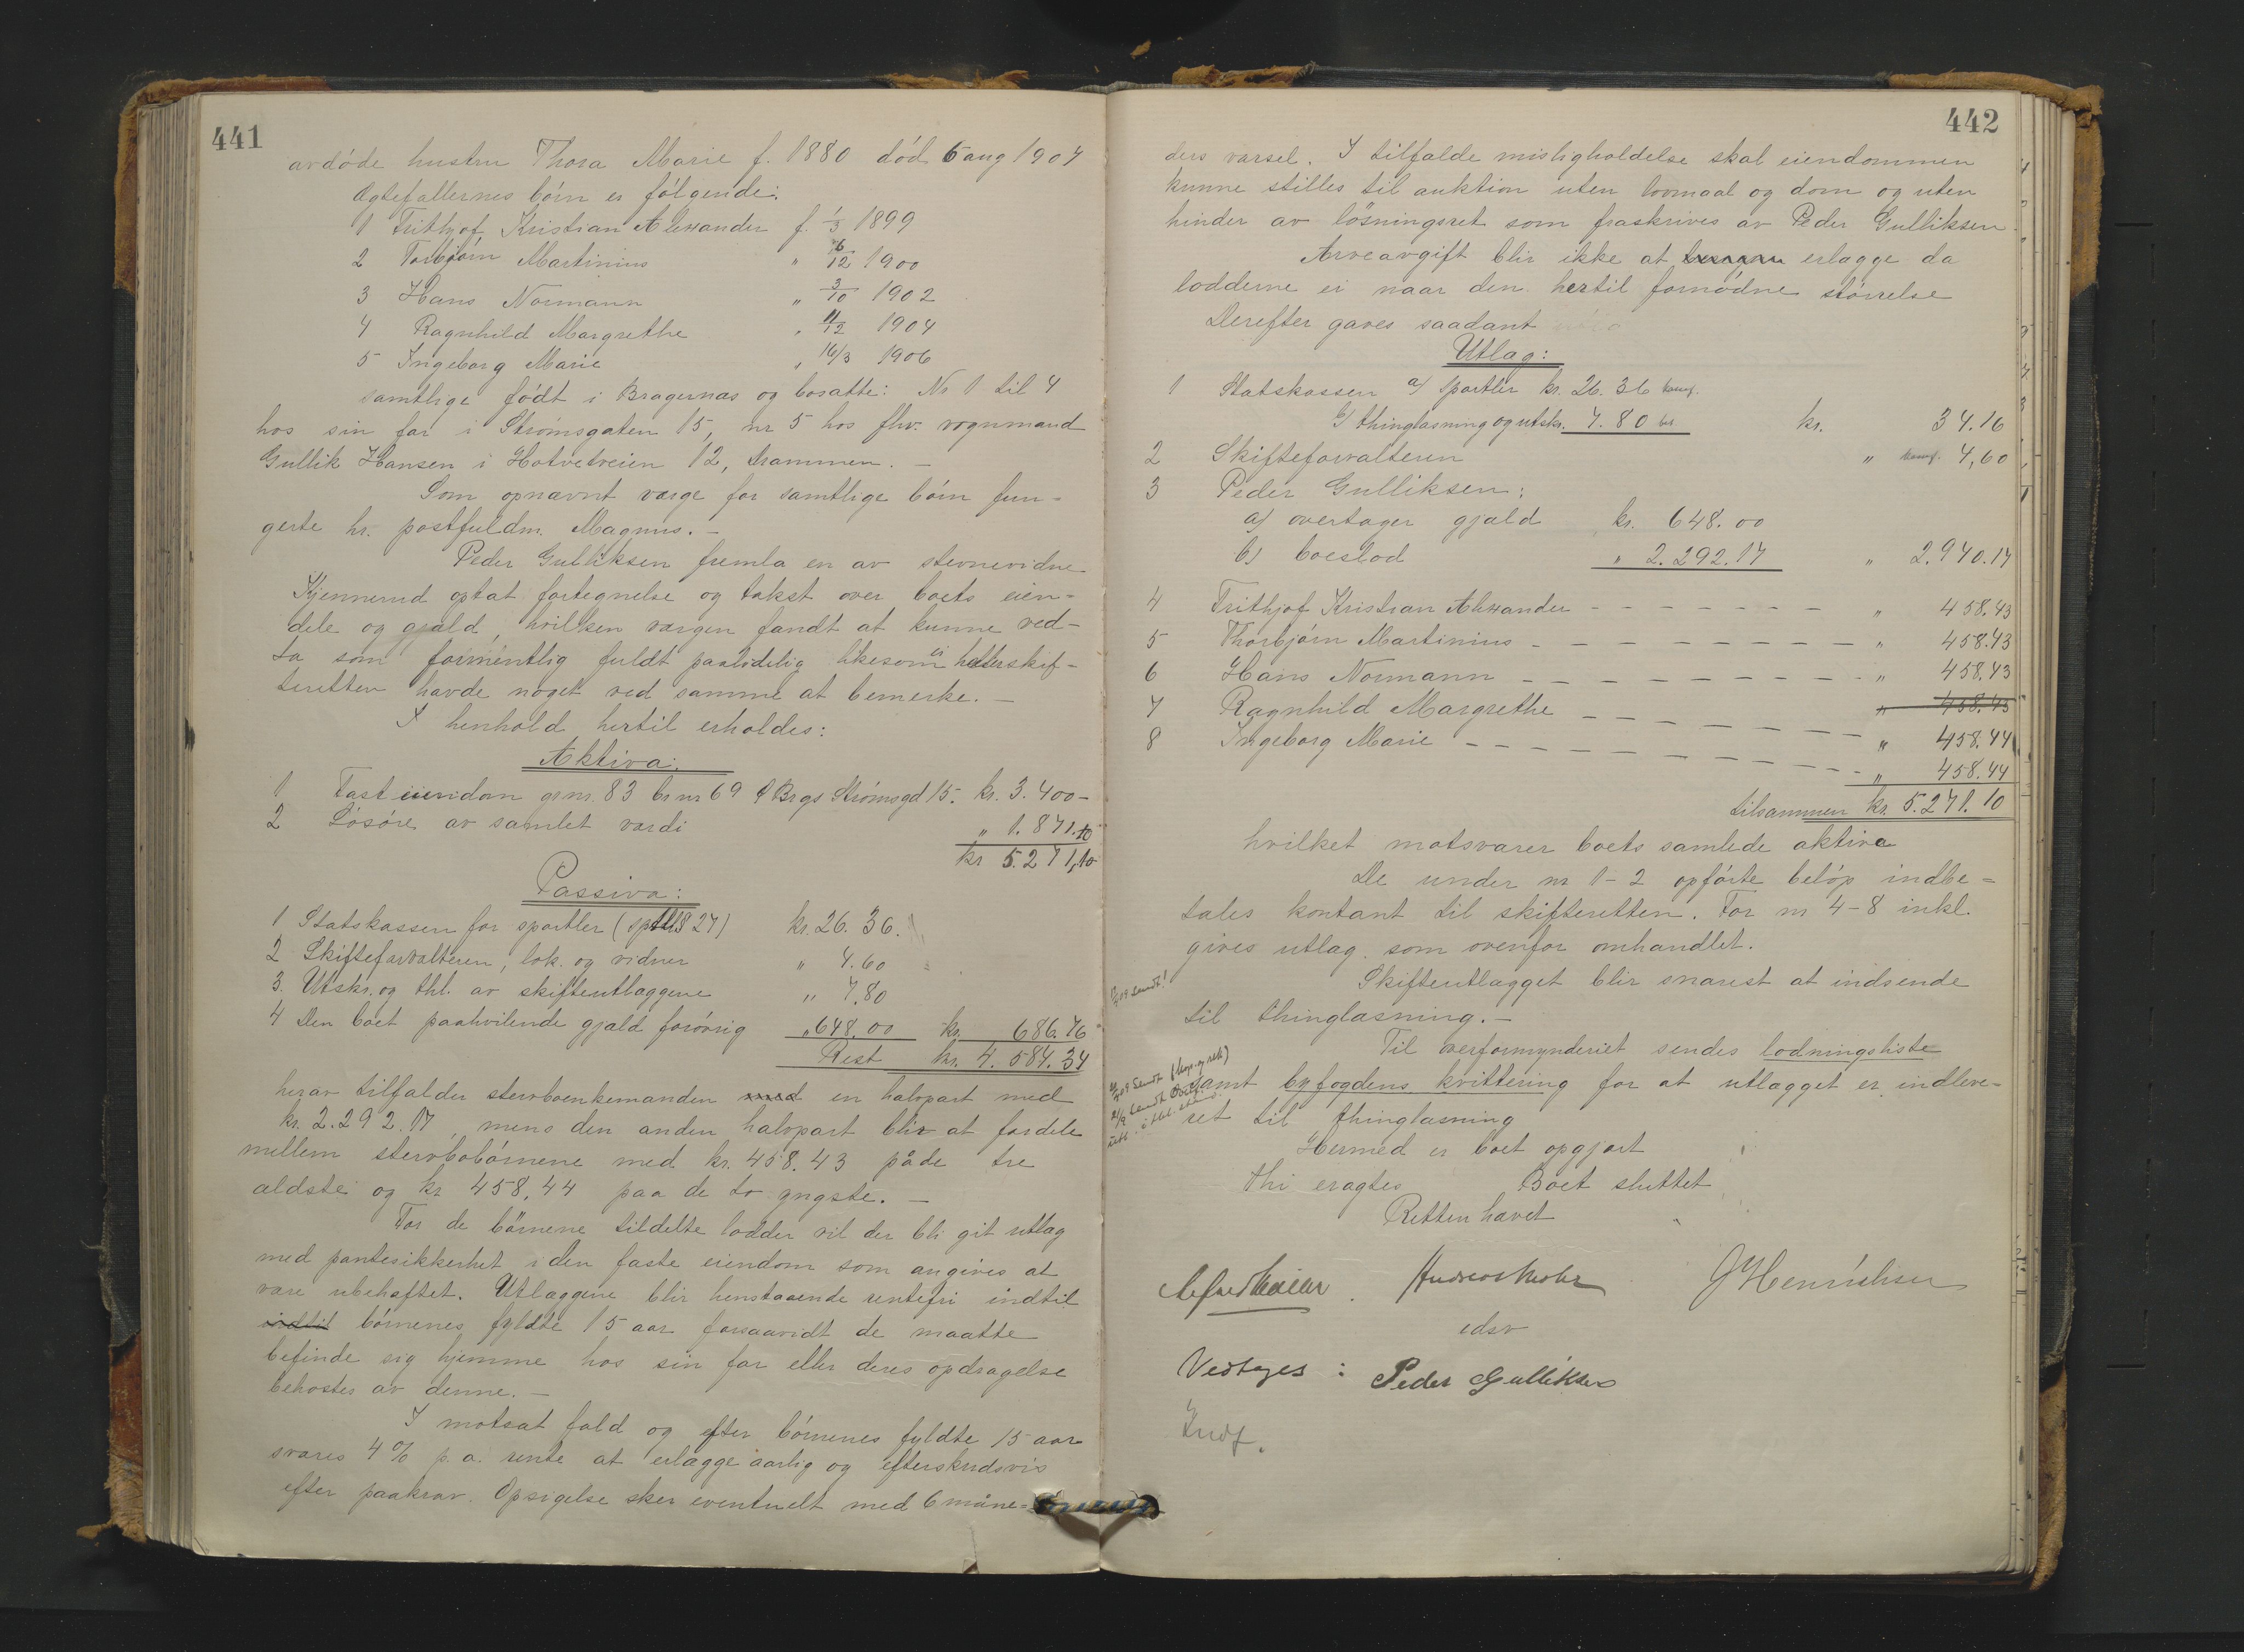 441
avdøde hustru Thora Marie f. 1880 død 6 aug 1907
Ægtefællernes børn er følgende:
1 Frithjof Kristian Alexander f. 1/3 1899
2 Torbjørn Martinius " 6/12 1900
3 Hans Normann " 3/10 1902
4 Ragnhild Margrethe " 11/12 1904
5 Ingeborg Marie " 14/3 1906
samtlige født i Bragernæs og bosatte: Nr 1 til 4
hos sin far i Strømsgaten 15, nr 5 hos fhv. vognmand
Gullik Hansen i Hotvetveien 12, Drammen. –
Som opnævnt værge for samtlige børn fun-
gerte hr. postfuldm. Magnus. –
Peder Gulliksen fremla en av stevnevidne
Kjennerud optat fortegnelse og takst over boets eien-
dele og gjæld, hvilken værgen fandt at kunne ved-
ta som formentlig fuldt paalidelig likesom ei heller skif-
teretten havde noget ved samme at bemerke. –
I henhold hertil erholdes:
Aktiva:
1 Fast eiendom grnr. 83 brnr 69 f Brgs Strømsgd 15. kr. 3.400 –
2 Løsøre av samlet værdi " 1.871.10
kr 5.271,10
Passiva:
1 Statskassen for sportler (sptl. § 27) kr. 26.36.
2 Skifteforvalteren, lok. og vidner " 4.60
3. Utskr. og thl. av skifteutlæggene " 7.80
4 Den boet paahvilende gjæld forøvrig " 648.00 kr. 686.76
Rest kr. 4.584.34
herav tilfalder stervboenkemanden med en halvpart med
kr. 2.292.17, mens den anden halvpart blir at fordele
mellem stervbobørnene med kr. 458.43 på de tre
ældste og kr 458,44 paa de to yngste. –
For de børnene tildelte lodder vil der bli git utlæg
med pantesikkerhet i den faste eiendom som angives at
være ubeheftet. Utlæggene blir henstaaende rentefri indtil
indtil børnenes fyldte 15 aar forsaavidt de maatte
befinde sig hjemme hos sin far eller deres opdragelse
bekostes av denne. –
I motsat fald og efter børnenes fyldte 15 aar
svares 4 % p. a. rente at erlægge aarlig og efterskudsvis
efter paakrav. Opsigelse sker eventuelt med 6 måne-
442
ders varsel. I tilfælde misligholdelse skal eiendommen
kunne stilles til auktion uten lovmaal og dom og uten
hinder av løsningsret som fraskrives av Peder Gulliksen.
Arveavgift blir ikke at erlægge da
lodderne ei naar den hertil fornødne størrelse
Derefter gaves saadant
Utlæg:
1 Statskassen a/ sportler kr. 26.36
b/ thinglæsning og utskr. 7.80 kr. 34.16
2 Skifteforvalteren " 4,60
3 Peder Gulliksen:
a/ overtager gjæld kr. 648.00
b/ boeslod " 2.292.17 " 2.940.17
4 Frithjof Kristian Alexander – – – – – – – " 458.43
5 Thorbjørn Martinius – – – – – – – – " 458.43
6 Hans Normann – – – – – – – – " 458.43
7 Ragnhild Margrethe – – – – – – – " 458.43
8 Ingeborg Marie – – – – – – – " 458.44
" 458.44
tilsammen kr. 5.271.10
hvilket motsvarer boets samlede aktiva
De under nr 1-2 opførte beløp indbe-
tales kontant til skifteretten. For nr 4-8 inkl.
gives utlæg som ovenfor omhandlet.
Skifteutlægget blir snarest at indsende
til thinglæsning. –
Til overformynderiet sendes lodningsliste
samt byfogdens kvittering for at utlægget er indleve-
ret til thinglæsning
Hermed er boet opgjort
thi eragtes Boet sluttet
Retten hævet
edsv
JHenrichsen
Vedtages : Peder Gulliksen
Indf.